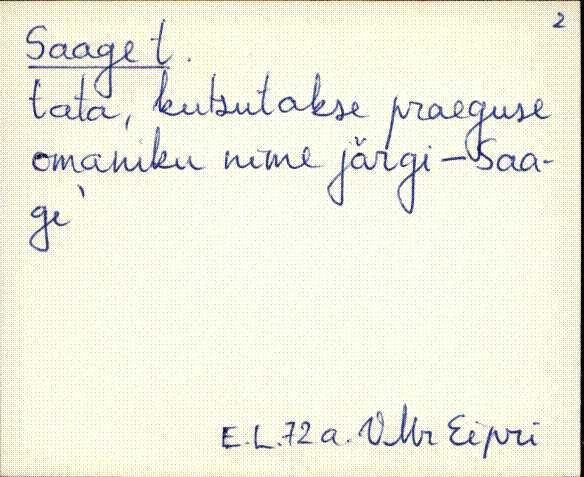 2
Saage t.
tata, kutsutakse praeguse
omaniku nime järgi – Saa-
ge`
E.L. 72 a. VMr Eipri